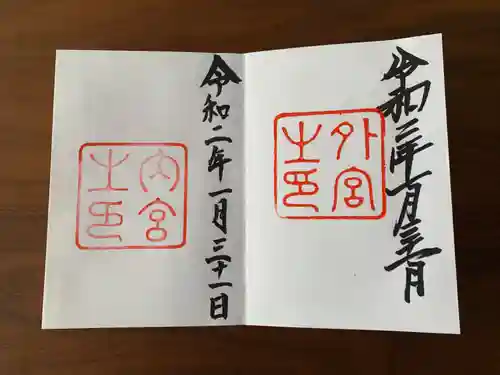 令和二年一月三十一日
外宮
之印
令和二年一月三十一日
内宮
之印